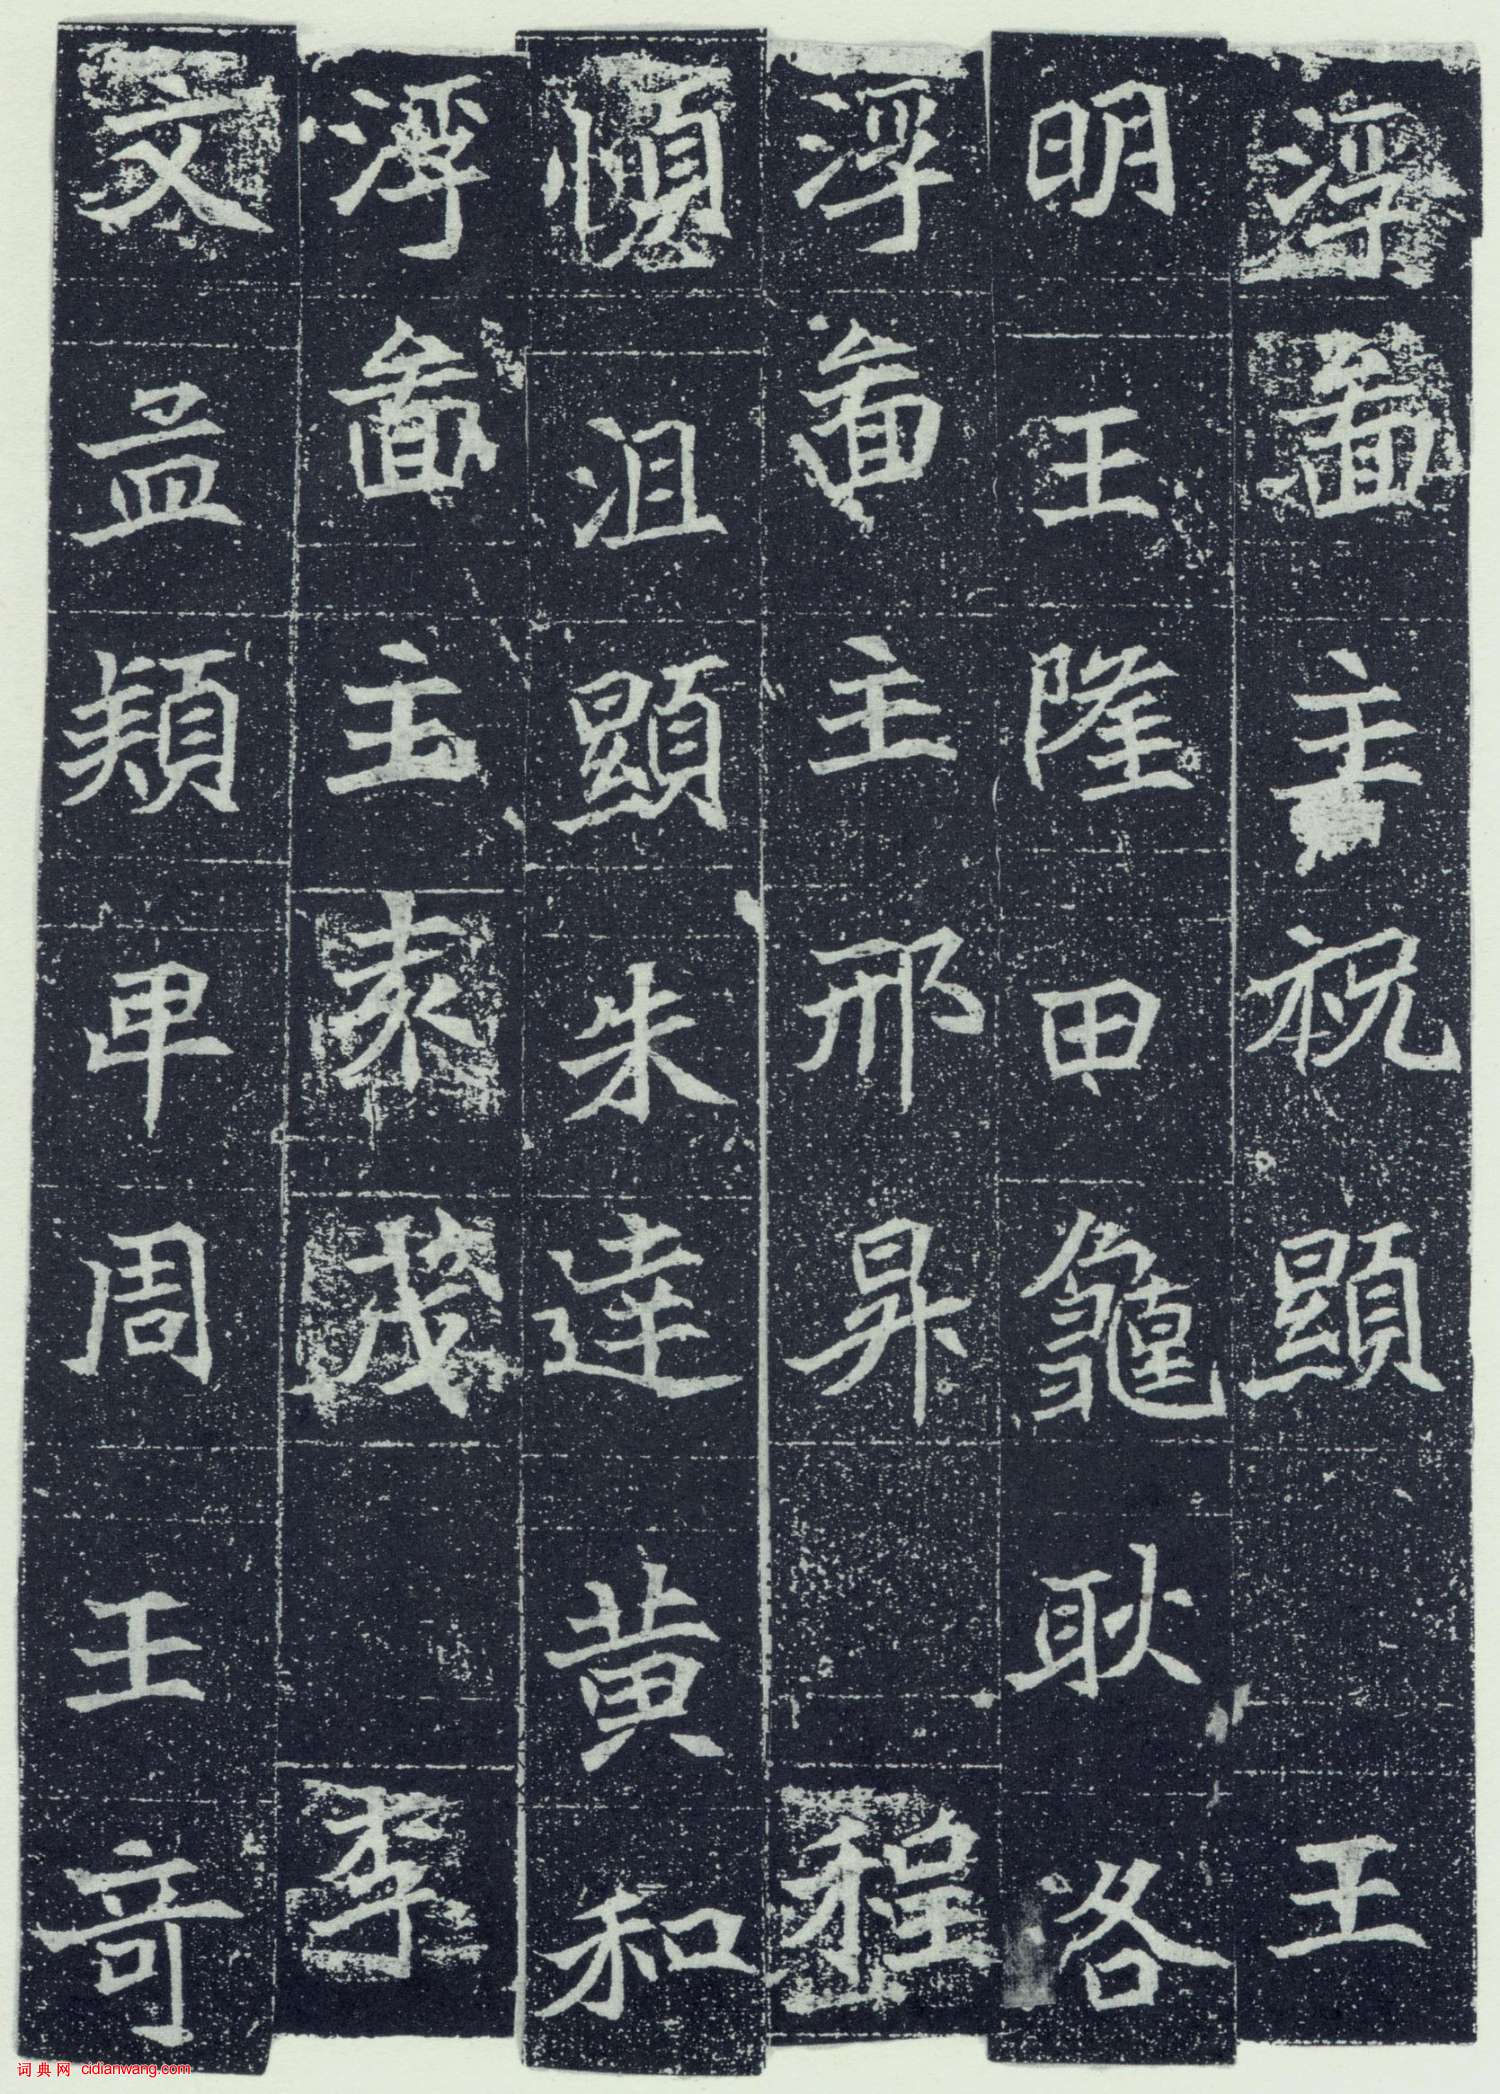 浮啚主祝顯王
明王隆甲龜耿各
浮啚主邢昇程
愼沮顯朱達黃和
浮啚主袁茂李
文孟頪申周王奇
词典网 cidianwang.com